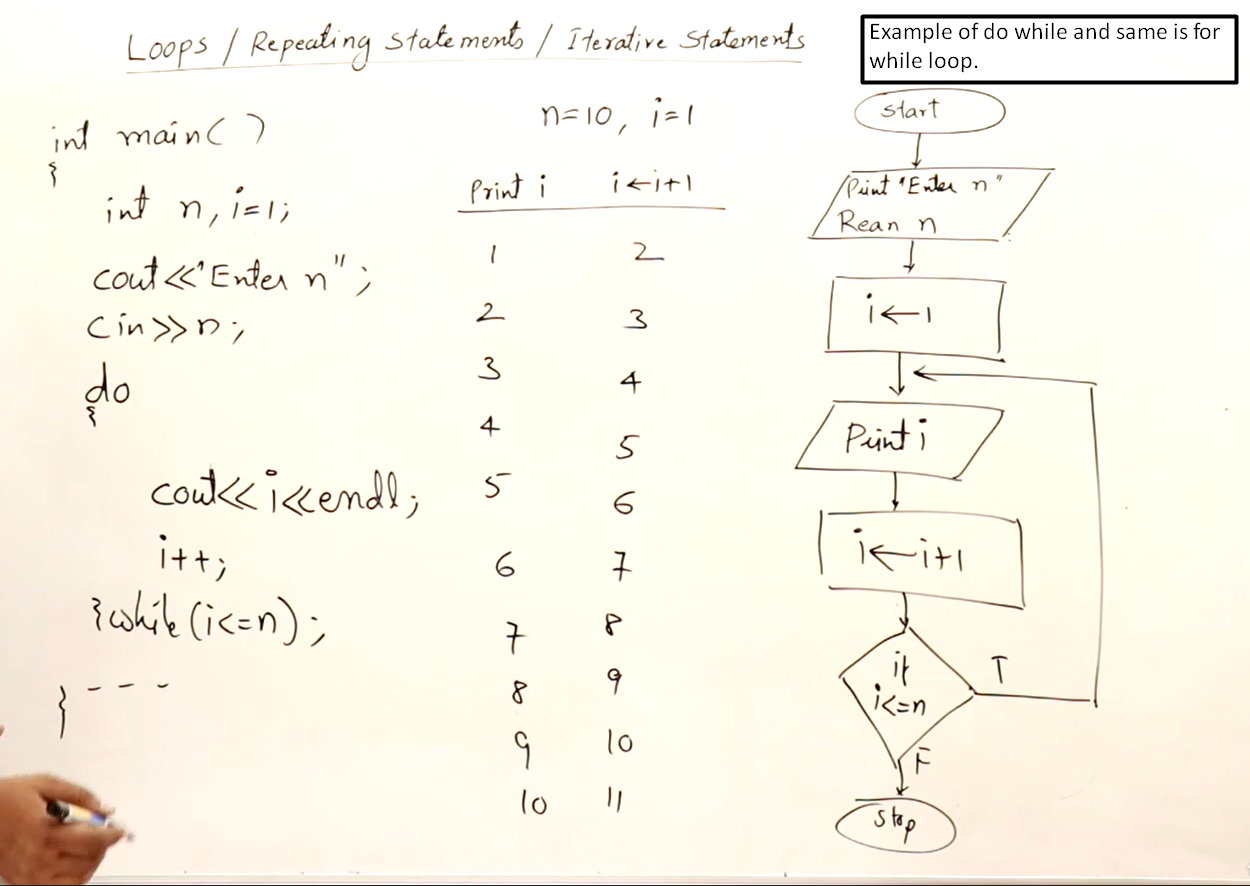 Loops / Repeating Statements / Iterative Statements
Example of do while and same is for
while loop.
int main( )
{
int n, i=1;
cout<<"Enter n";
cin>>n;
do
{
cout<<i<<endl;
i++;
}while(i<=n);
- - -
}
n=10, i=1
Print i i←i+1
1 2
2 3
3 4
4 5
5 6
6 7
7 8
8 9
9 10
10 11
start
Print "Enter n"
Rean n
i←1
Print i
i←i+1
if
i<=n
T
F
stop